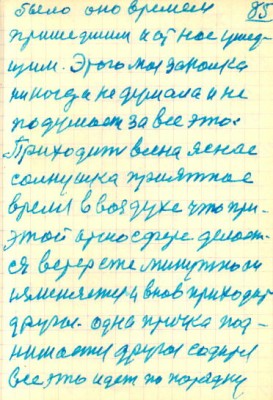 было оно время 85
пришедшим и от нас ушед-
щим. Этого моя
никогда не думала и не
подумает за все это:
Приходит весна ясная
солнушка приятное
время в воздухе что при-
этой атмосфере делает-
ся
изменяется и вновь приходит
другое. одна птичка под-
нимается другая садится
все это идет по порядку